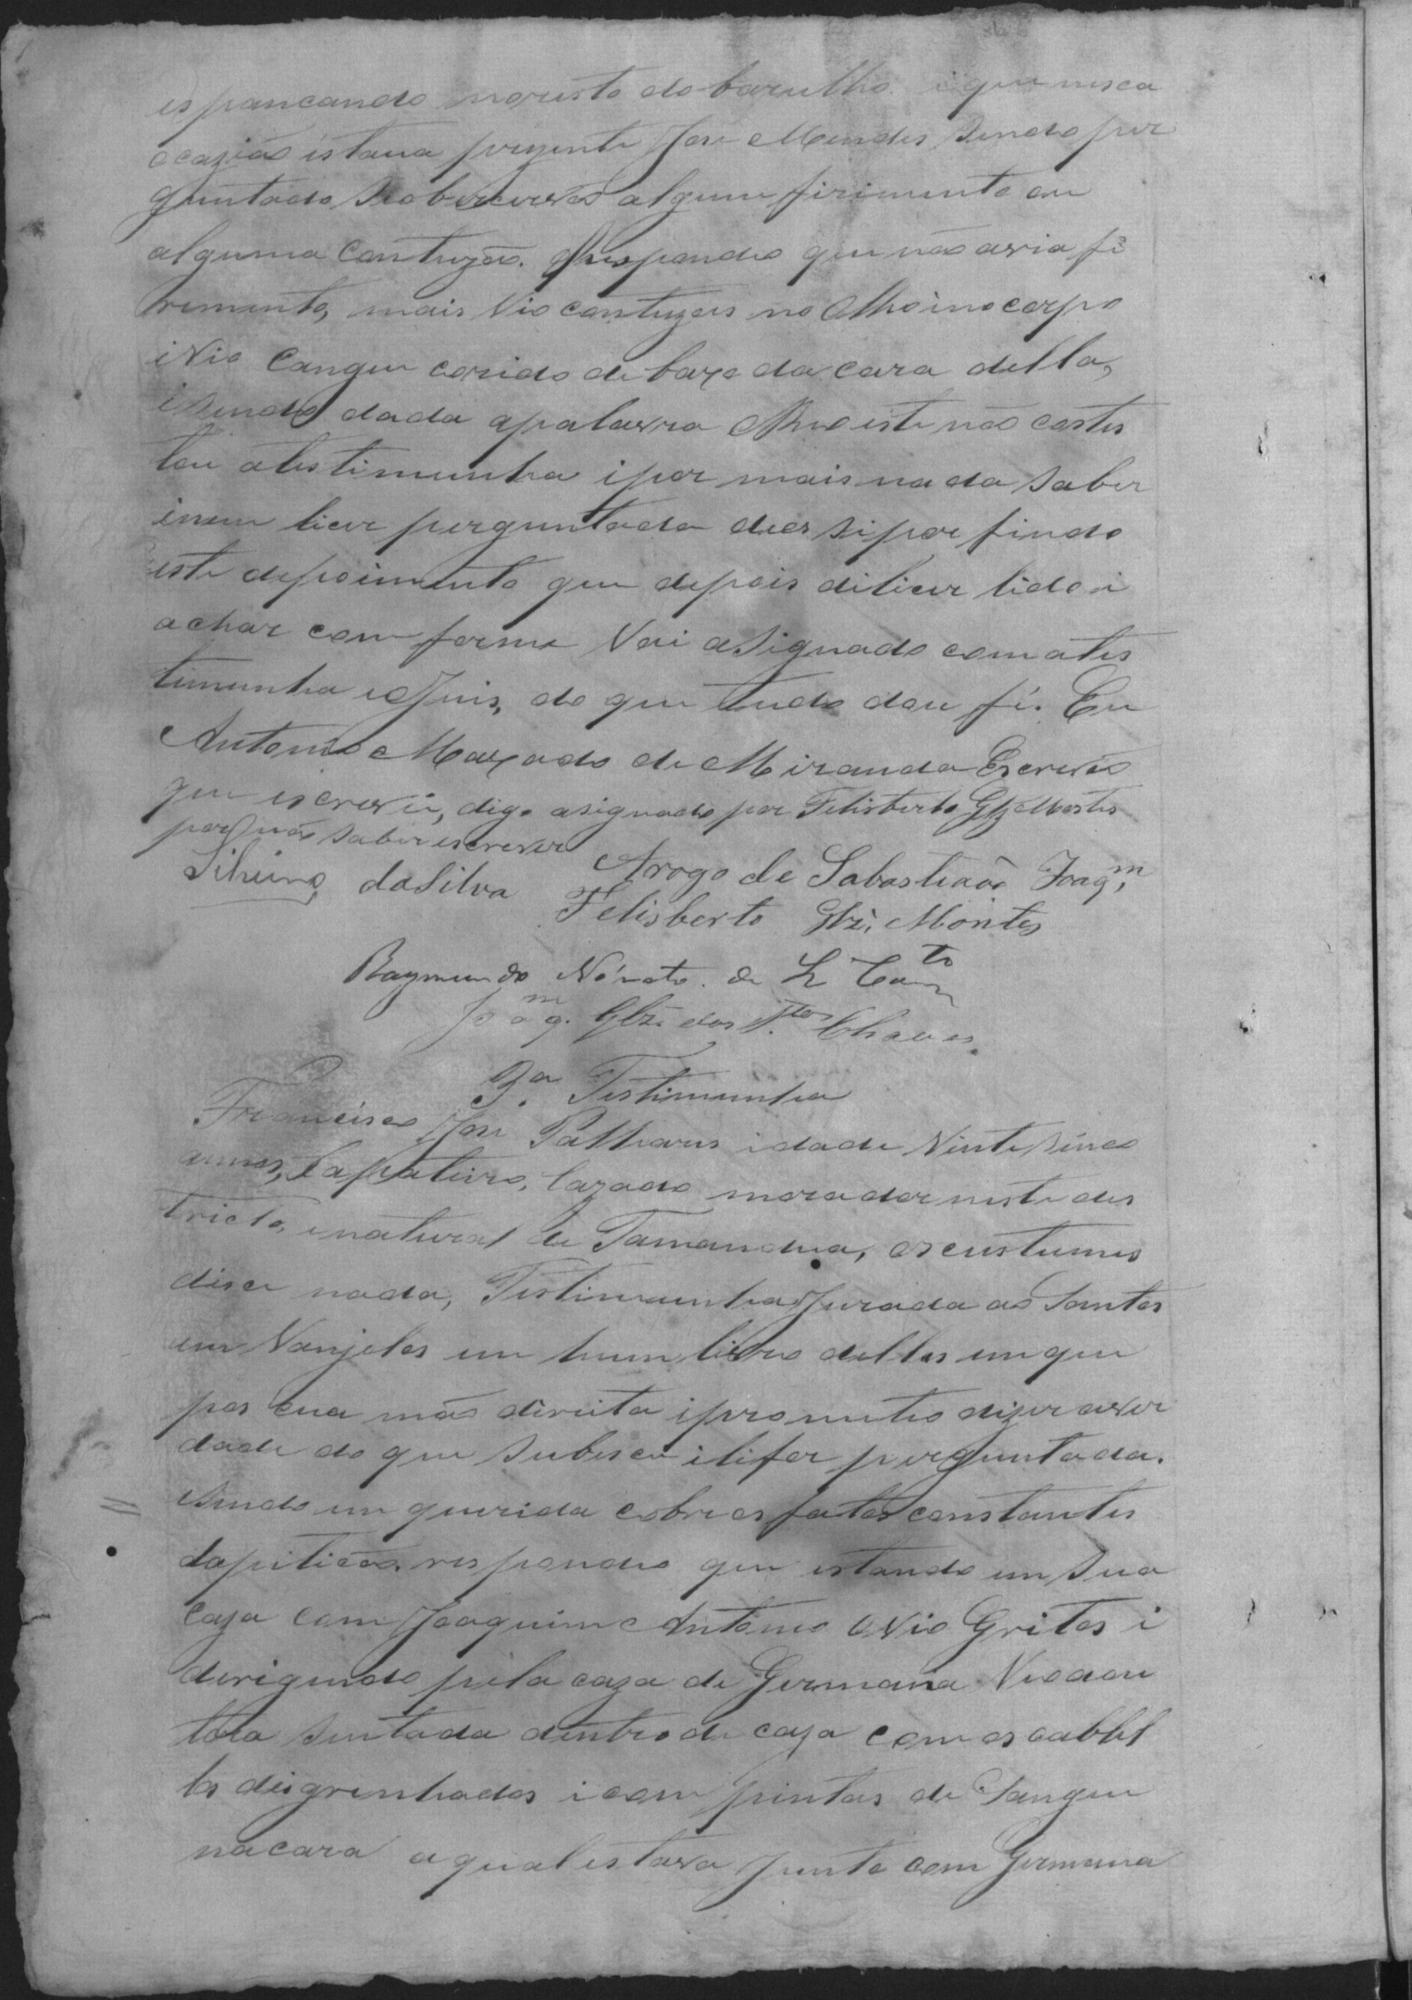 espancando no resto do barulho. i que nesca
ocazião estava prezente Jose Mendes, sendo per
guntado se obcervou algum firimento ou
alguma contuzão. Respondeo que não avia fi
rimento, mais vio contuzois no olho i no corpo
i vio Cangue corido de baxo da cara della,
i sendo dada apalavra Reo este não contes
tou atestimunha i por mais nada saber
inem licer perguntada deo si por findo
este depoimento que depois dilicer lido i
achar comforme vai asignado com ates
timunha eo Juis, do que tudo dou fé. Eu
Antonio Maxado de Miranda Escrivão
que iscrevi, digo asignado por Felisberto Glz Montes
por não saber escrever
Silveira da Silva Arogo de Sabastiaõ Joaqm,
Felisberto Glz. Montes
Raymundo Nonato de
Joaqm. Glz. dos Stos Chaves.
3a. Testimunha
Francisco Jose Patharis idade vinte sinco
annos, Capateiro, Cazado morador neste dis
tricto, enatural de Tamandua, oscustumes
disce nada, Testimunha Jurada ao Santos
em Vanjelos em hum livro delles em que
pos cua mão direita i prometeo dizer aver
dade do que subesce i lifor perguntada.
isendo em querida cobre os fatos constantes
dapitição, respondeo que estando em sua
Caza com Joaquim Antonio ovio Gritos i
dirigindo pela caza de Germana vio dou
tora sentada dentro de caza com os cabbel
los disgrenhados i com pintas de Sangue
na cara aqual estava junto com Germana